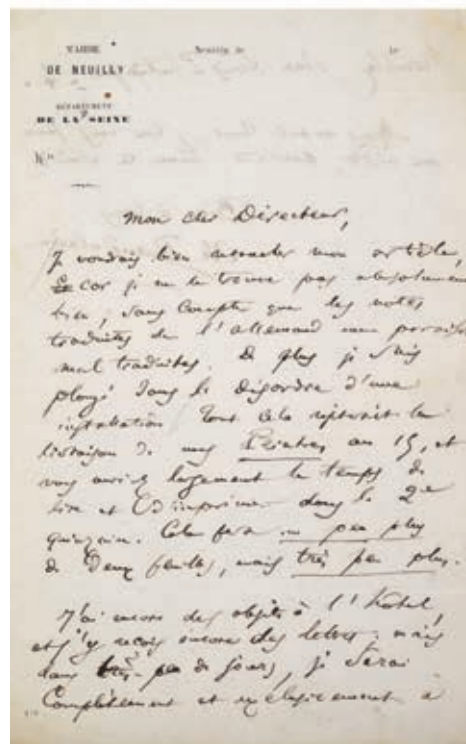 MAIRIE
DE NEUILLY
DÉPARTEMENT
DE LA SEINE
N°
Neuilly, le
Mon cher Directeur,
Je voudrais bien remanier mon article,
car je ne le trouve pas absolument
bien, sans compter que les notes
traduites de l'allemand me paraissent
mal traduites. De plus je suis
plongé dans le désordre d'une
installation. Tout cela la
livraison de mes Peintres au 15, et
vous auriez largement le temps de
lire et d'imprimer dans la 2e
quinzaine. Cela fera un peu plus
de deux feuilles, mais très peu plus.
J'ai encore des objets à l'hôtel,
et j'y reçois encore des lettres; mais
dans peu de jours, je serai
Complètement et exclusivement à